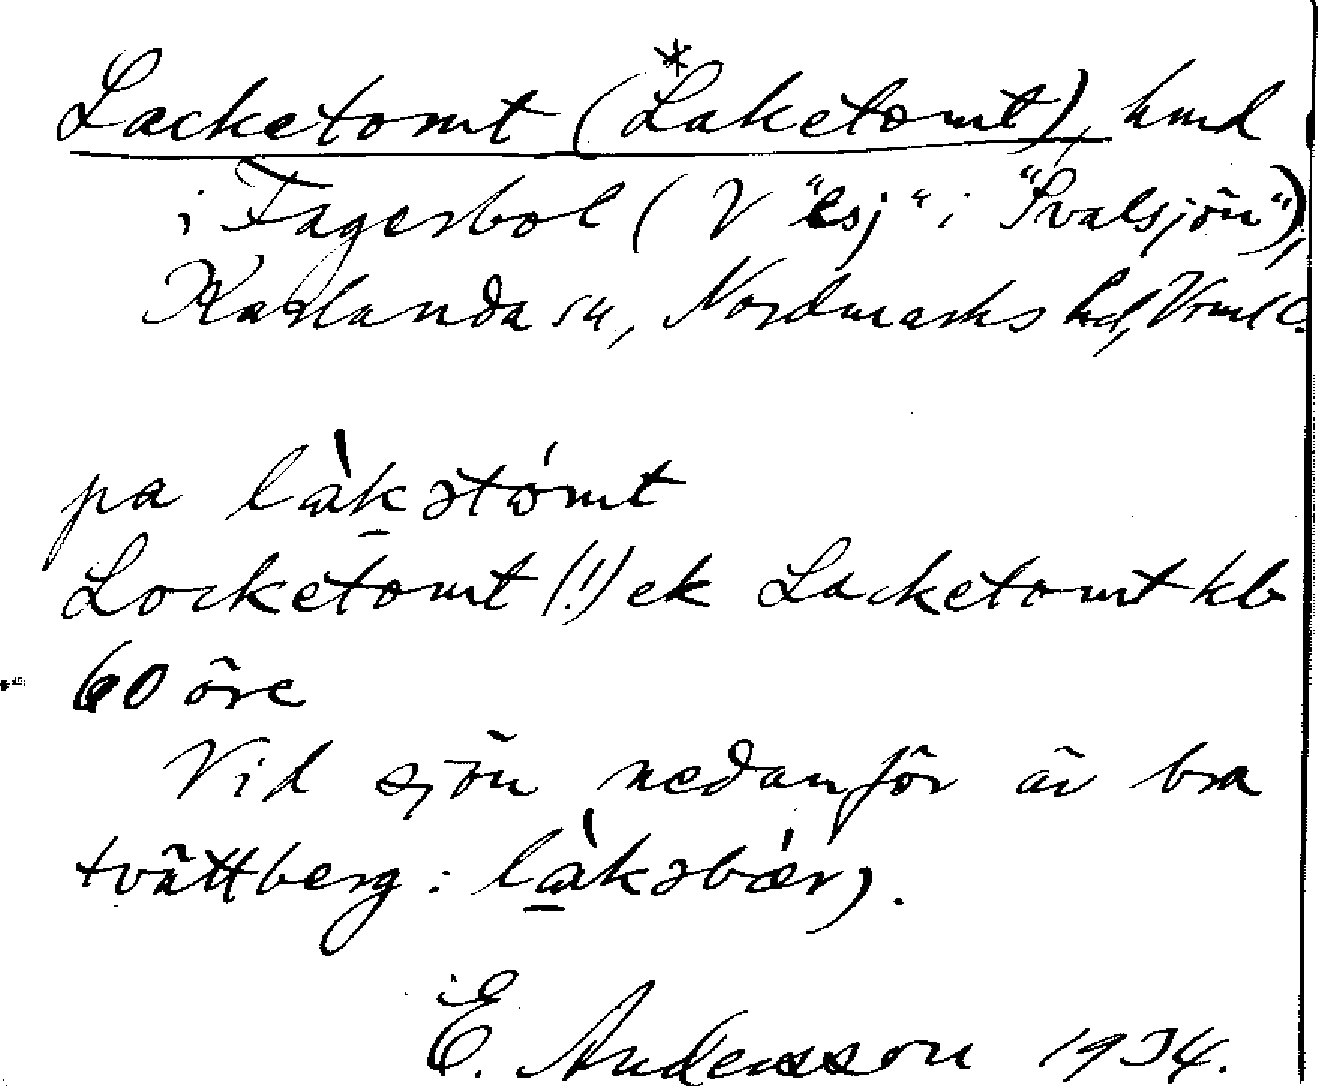 Lacketomt (*Laketomt), hmd
i Fagerbol (V "lsj" i "Svalsjön"),
Karlanda sn, Nordmarks hd, Vrml l.
pa làkətómt
Locketomt (!) ek Lacketomt kb
60 öre
Vid sjön nedanför är bra
tvättberg: làkəbǽrj.
E. Andersson 1934.